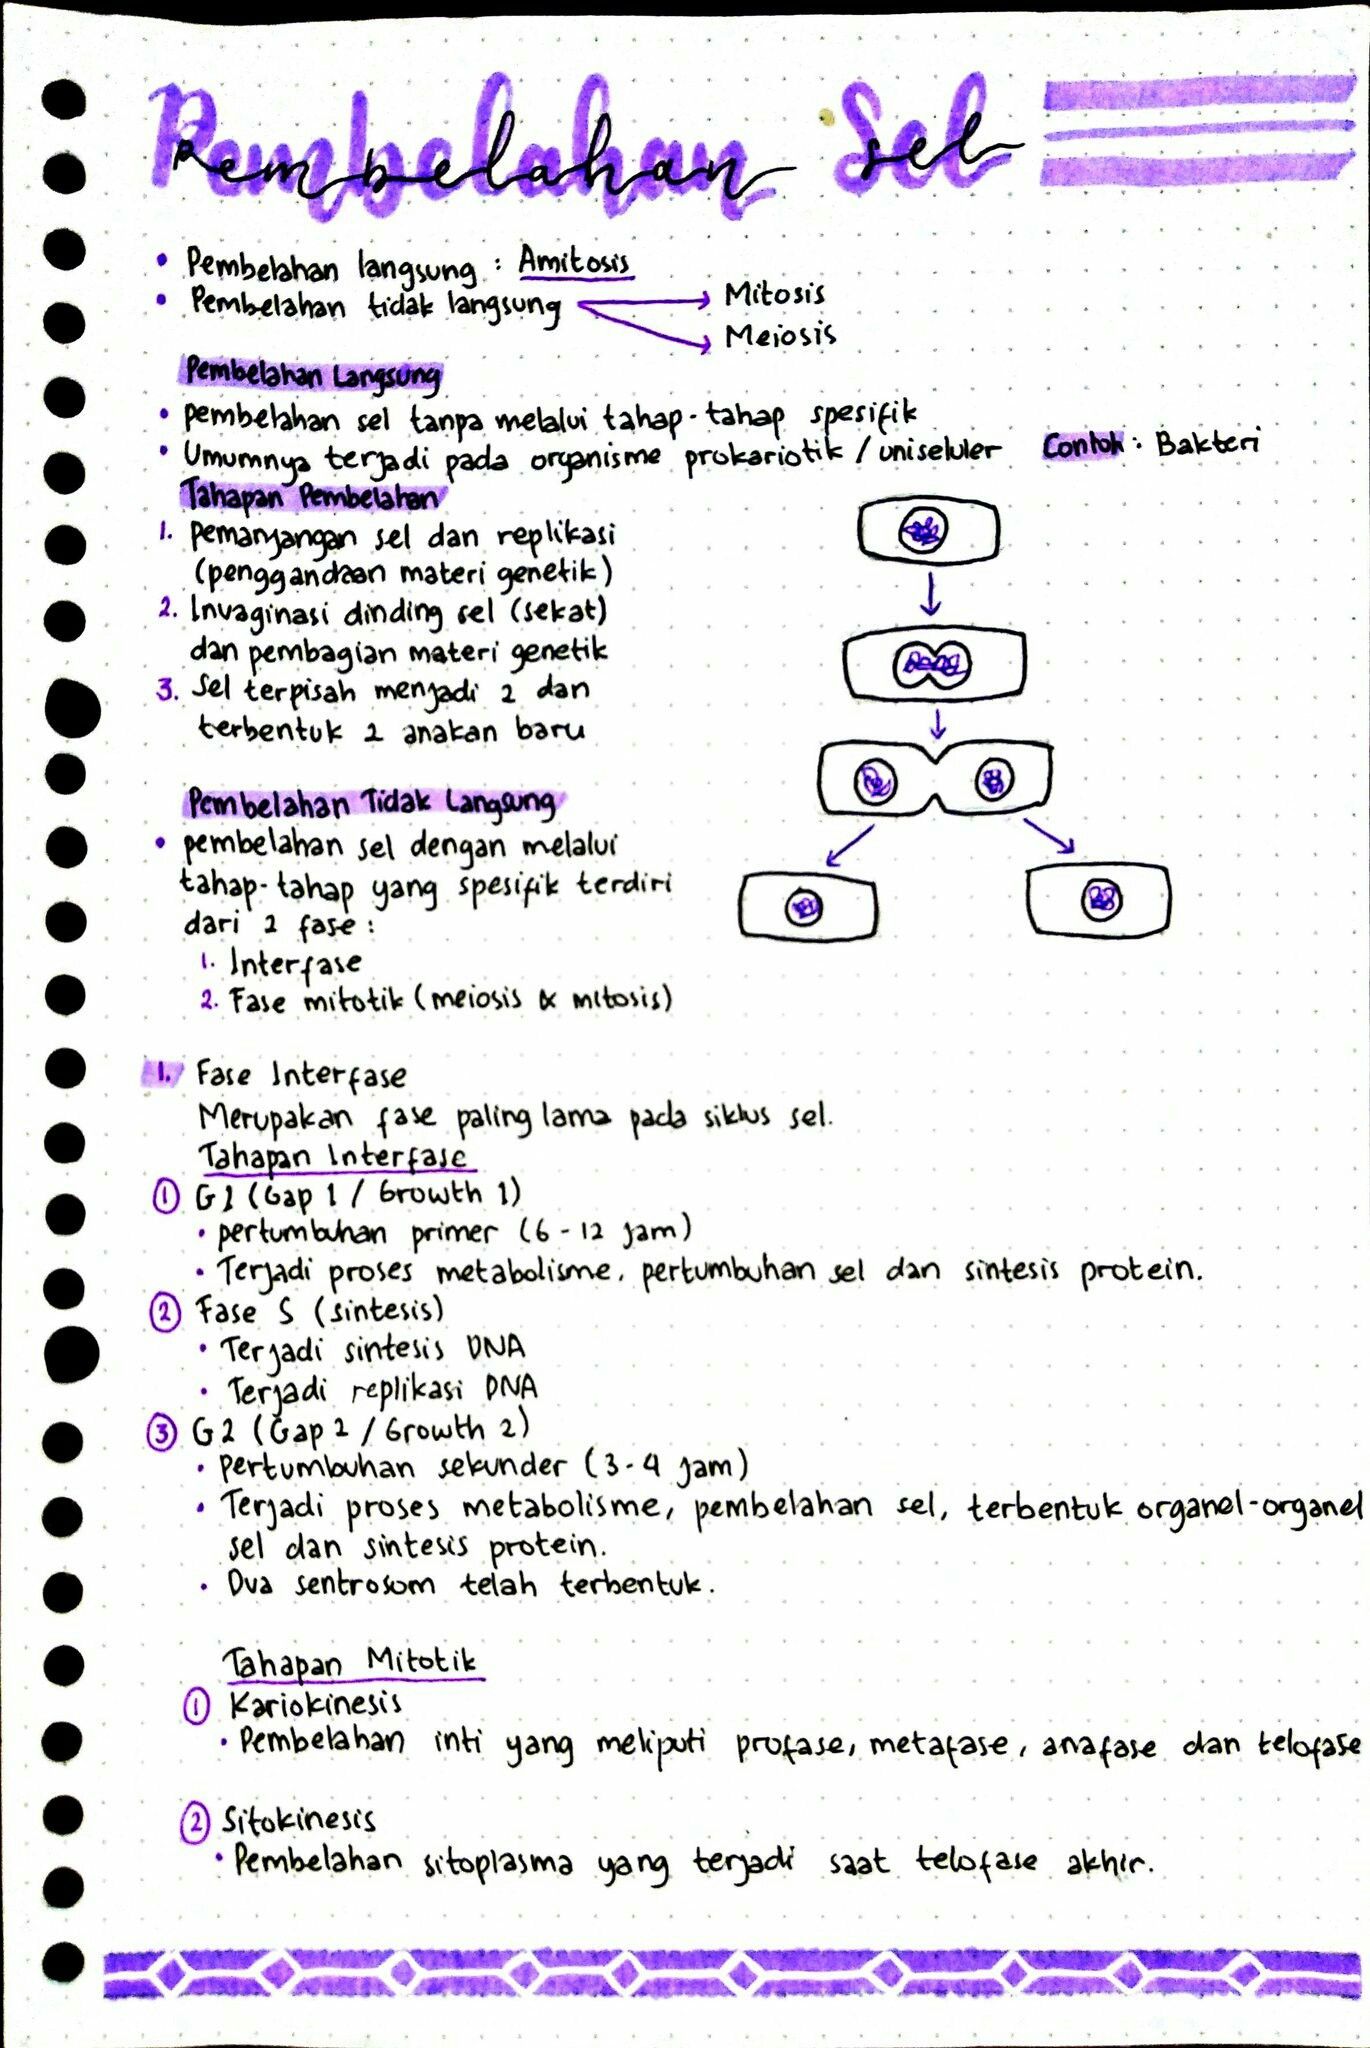 Pembelahan Sel
• Pembelahan langsung : Amitosis
• Pembelahan tidak langsung → Mitosis
→ Meiosis
Pembelahan Langsung
• pembelahan sel tanpa melalui tahap-tahap spesifik
• Umumnya terjadi pada organisme prokariotik / uniseluler Contoh : Bakteri
Tahapan Pembelahan
1. Pemanjangan sel dan replikasi
(penggandaan materi genetik)
2. Invaginasi dinding sel (sekat)
dan pembagian materi genetik
3. Sel terpisah menjadi 2 dan
terbentuk 2 anakan baru
Pembelahan Tidak Langsung
• pembelahan sel dengan melalui
tahap-tahap yang spesifik terdiri
dari 2 fase :
1. Interfase
2. Fase mitotik (meiosis & mitosis)
1. Fase Interfase
Merupakan fase paling lama pada siklus sel.
Tahapan Interfase
① G1 (Gap 1 / Growth 1)
• pertumbuhan primer (6 - 12 jam)
• Terjadi proses metabolisme, pertumbuhan sel dan sintesis protein.
② Fase S (sintesis)
• Terjadi sintesis DNA
• Terjadi replikasi DNA
③ G2 (Gap 2 / Growth 2)
• Pertumbuhan sekunder (3-4 jam)
• Terjadi proses metabolisme, pembelahan sel, terbentuk organel-organel
sel dan sintesis protein.
• Dua sentrosom telah terbentuk.
Tahapan Mitotik
① Kariokinesis
• Pembelahan inti yang meliputi profase, metafase, anafase dan telofase
② Sitokinesis
• Pembelahan sitoplasma yang terjadi saat telofase akhir.